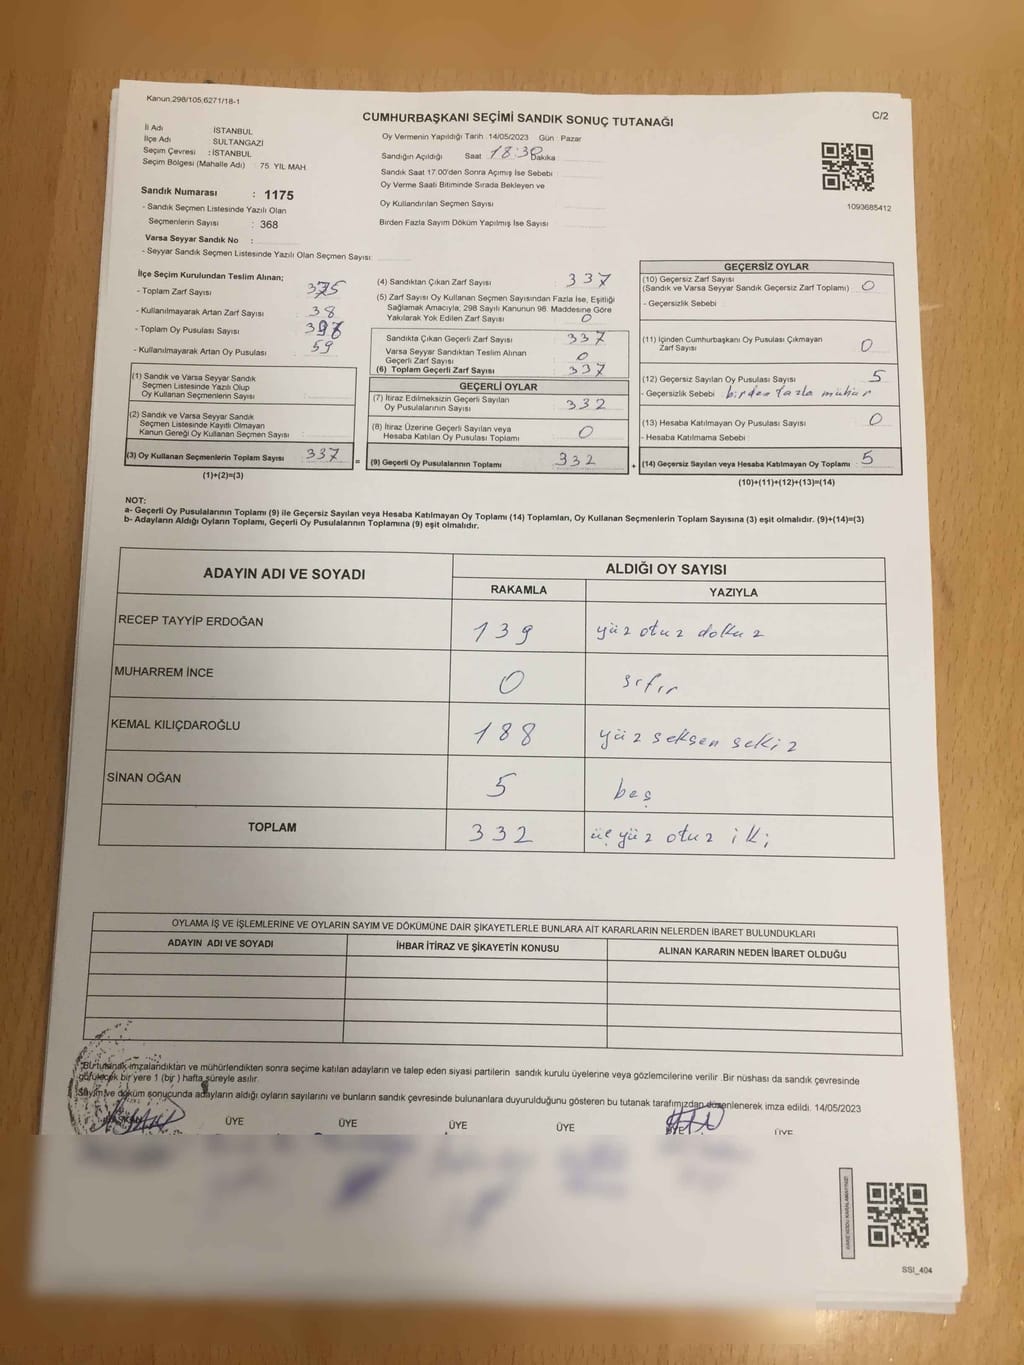 Kanun,298/105,6271/18-1
CUMHURBAŞKANI SEÇİMİ SANDIK SONUÇ TUTANAĞI
C/2
İl Adı İSTANBUL
İlçe Adı SULTANGAZİ
Seçim Çevresi : İSTANBUL
Seçim Bölgesi (Mahalle Adı) : 75. YIL MAH.
Sandık Numarası : 1175
- Sandık Seçmen Listesinde Yazılı Olan
Seçmenlerin Sayısı : 368
Varsa Seyyar Sandık No :
- Seyyar Sandık Seçmen Listesinde Yazılı Olan Seçmen Sayısı:
Oy Vermenin Yapıldığı Tarih :14/05/2023 Gün : Pazar
Sandığın Açıldığı Saat 18:30 Dakika
Sandık Saat 17.00'den Sonra Açımış İse Sebebi :
Oy Verme Saati Bitiminde Sırada Bekleyen ve
Oy Kullandırılan Seçmen Sayısı :
Birden Fazla Sayım Döküm Yapılmış İse Sayısı :
1093685412
İlçe Seçim Kurulundan Teslim Alınan;
- Toplam Zarf Sayısı : 375
- Kullanılmayarak Artan Zarf Sayısı : 38
- Toplam Oy Pusulası Sayısı :
- Kullanılmayarak Artan Oy Pusulası : 59
(1) Sandık ve Varsa Seyyar Sandık
Seçmen Listesinde Yazılı Olup
Oy Kullanan Seçmenlerin Sayısı :
(2) Sandık ve Varsa Seyyar Sandık
Seçmen Listesinde Kayıtlı Olmayan
Kanun Gereği Oy Kullanan Seçmen Sayısı :
(3) Oy Kullanan Seçmenlerin Toplam Sayısı : 337
(1)+(2)=(3)
(4) Sandıktan Çıkan Zarf Sayısı : 337
(5) Zarf Sayısı Oy Kullanan Seçmen Sayısından Fazla İse, Eşitliği
Sağlamak Amacıyla; 298 Sayılı Kanunun 98. Maddesine Göre
Yakılarak Yok Edilen Zarf Sayısı : 0
Sandıkta Çıkan Geçerli Zarf Sayısı : 337
Varsa Seyyar Sandıktan Teslim Alınan
Geçerli Zarf Sayısı : 0
(6) Toplam Geçerli Zarf Sayısı : 337
GEÇERLİ OYLAR
(7) İtiraz Edilmeksizin Geçerli Sayılan
Oy Pusulalarının Sayısı : 332
(8) İtiraz Üzerine Geçerli Sayılan veya
Hesaba Katılan Oy Pusulası Toplamı : 0
= (9) Geçerli Oy Pusulalarının Toplamı : 332
GEÇERSİZ OYLAR
(10) Geçersiz Zarf Sayısı
(Sandık ve Varsa Seyyar Sandık Geçersiz Zarf Toplamı) : 0
- Geçersizlik Sebebi :
(11) İçinden Cumhurbaşkanı Oy Pusulası Çıkmayan
Zarf Sayısı : 0
(12) Geçersiz Sayılan Oy Pusulası Sayısı : 5
- Geçersizlik Sebebi : birden fazla mühür
(13) Hesaba Katılmayan Oy Pusulası Sayısı : 0
- Hesaba Katılmama Sebebi :
+ (14) Geçersiz Sayılan veya Hesaba Katılmayan Oy Toplamı : 5
(10)+(11)+(12)+(13)=(14)
NOT:
a- Geçerli Oy Pusulalarının Toplamı (9) ile Geçersiz Sayılan veya Hesaba Katılmayan Oy Toplamı (14) Toplamları, Oy Kullanan Seçmenlerin Toplam Sayısına (3) eşit olmalıdır. (9)+(14)=(3)
b- Adayların Aldığı Oyların Toplamı, Geçerli Oy Pusulalarının Toplamına (9) eşit olmalıdır.
ADAYIN ADI VE SOYADI
ALDIĞI OY SAYISI
RAKAMLA YAZIYLA
RECEP TAYYİP ERDOĞAN 139 yüz otuz dokuz
MUHARREM İNCE 0 sıfır
KEMAL KILIÇDAROĞLU 188 yüz seksen sekiz
SİNAN OĞAN 5 beş
TOPLAM 332 üç yüz otuz iki
OYLAMA İŞ VE İŞLEMLERİNE VE OYLARIN SAYIM VE DÖKÜMÜNE DAİR ŞİKAYETLERLE BUNLARA AİT KARARLARIN NELERDEN İBARET BULUNDUKLARI
ADAYIN ADI VE SOYADI İHBAR İTİRAZ VE ŞİKAYETİN KONUSU ALINAN KARARIN NEDEN İBARET OLDUĞU
*Bu tutanak imzalandıktan ve mühürlendikten sonra seçime katılan adayların ve talep eden siyasi partilerin sandık kurulu üyelerine veya gözlemcilerine verilir .Bir nüshası da sandık çevresinde
görülecek bir yere 1 (bir ) hafta süreyle asılır.
Sayım ve döküm sonucunda adayların aldığı oyların sayılarını ve bunların sandık çevresinde bulunanlara duyurulduğunu gösteren bu tutanak tarafımızdan düzenlenerek imza edildi. 14/05/2023
BAŞKAN ÜYE ÜYE ÜYE ÜYE ÜYE ÜYE
SSI_404